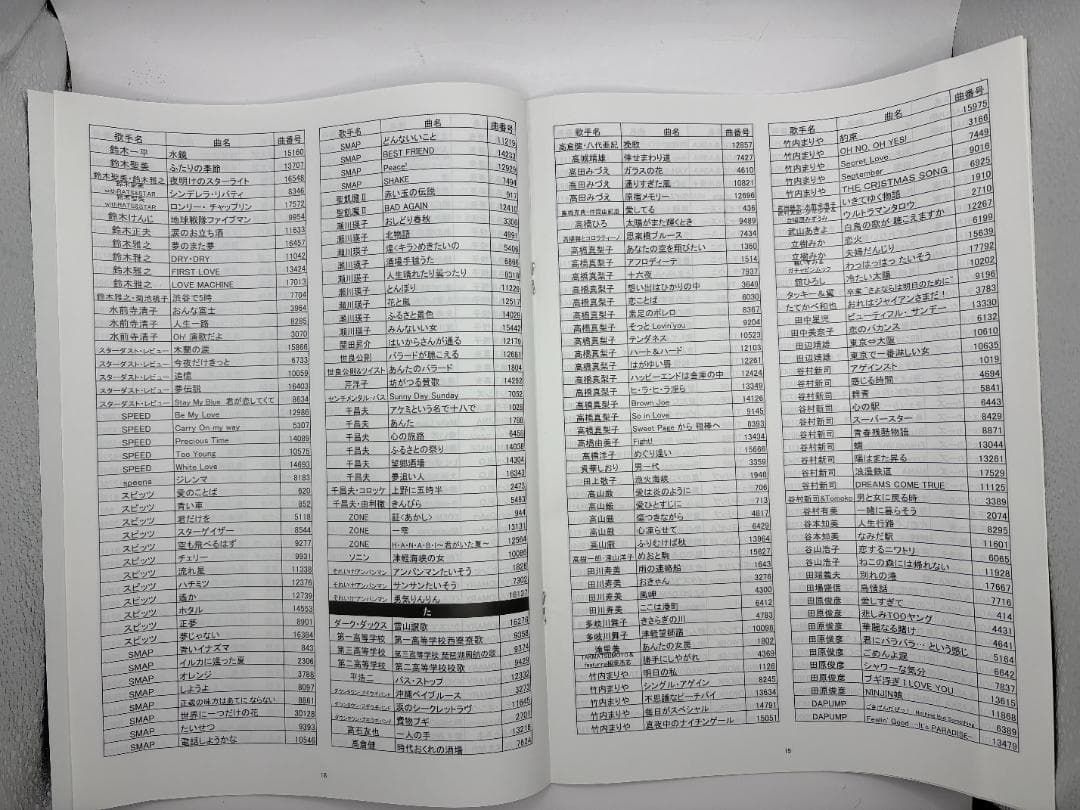 歌手名 曲名 曲番号
鈴木一平 水鏡 15160
鈴木聖美 ふたりの季節 13707
鈴木聖美・鈴木雅之 夜明けのスターライト 16548
シンデレラ・リバティ 8346
ロンリー・チャップリン 17572
鈴木けんじ 地球戦隊ファイブマン 9954
鈴木正夫 涙のお立ち酒 11633
鈴木雅之 夢のまた夢 16457
鈴木雅之 DRY・DRY 11042
鈴木雅之 FIRST LOVE 13424
鈴木雅之 LOVE MACHINE 17013
鈴木雅之・菊池桃子 渋谷で5時 7704
水前寺清子 おんな富士 3964
水前寺清子 人生一路 8285
水前寺清子 OH 演歌だよ 3070
スターダスト・レビュー 木蘭の涙 15866
スターダスト・レビュー 今夜だけきっと 6733
スターダスト・レビュー 追憶 10059
スターダスト・レビュー 夢伝説 16403
スターダスト・レビュー Stay My Blue 君が恋してくて 8634
SPEED Be My Love 12986
SPEED Carry On my way 5307
SPEED Precious Time 14089
SPEED Too Young 10575
SPEED White Love 14693
speena ジレンマ 8183
スピッツ 愛のことば 620
スピッツ 青い車 852
スピッツ 君だけを 5118
スピッツ スターゲイザー 8544
スピッツ 空も飛べるはず 9277
スピッツ チェリー 9931
スピッツ 流れ星 11338
スピッツ ハチミツ 12376
スピッツ 遥か 12739
スピッツ ホタル 14553
スピッツ 正夢 8901
スピッツ 夢じゃない 16384
SMAP 青いイナズマ 843
SMAP イルカに逢った夏 2306
SMAP オレンジ 3788
SMAP しようよ 8097
SMAP 正義の味方はあてにならない 8661
SMAP 世界に一つだけの花 30128
SMAP たいせつ 9393
SMAP 電話しようかな 10546
歌手名 曲名 曲番号
SMAP どんないいこと 11219
SMAP BEST FRIEND 14232
SMAP Peace! 12925
SMAP SHAKE 1494
聖飢魔Ⅱ 赤い玉の伝説 917
聖飢魔Ⅱ BAD AGAIN 12410
瀬川瑛子 おしどり春秋 3306
瀬川瑛子 北物語 4991
瀬川瑛子 煌(キラ)めきたいの 5406
瀬川瑛子 酒場手毬うた
瀬川瑛子 人生晴れたり曇ったり
瀬川瑛子 とんぼり 11229
瀬川瑛子 花と嵐 12517
瀬川瑛子 ふるさと景色
瀬川瑛子 みんないい女 15442
関田昇介 はいからさんが通る
世良公則 バラードが聴こえる
世良公則&ツイスト あんたのバラード 1804
芹洋子 坊がつる賛歌 14262
センチメンタル・バス Sunny Day Sunday 7052
千昌夫 アケミという名で十八で
千昌夫 あんた
千昌夫 心の旅路
千昌夫 ふるさとの祭り
千昌夫 望郷酒場 14304
千昌夫 夢追い人 16343
千昌夫・コロッケ 上野に五時半 2473
千昌夫・由利徹 きんぴら 5483
ZONE 証<あかし> 944
ZONE 一雫 13131
ZONE H・A・N・A・B・I~君がいた夏~ 12564
ソニン 津軽海峡の女
それいけ!アンパンマン アンパンマンたいそう 1826
それいけ!アンパンマン サンサンたいそう 7302
それいけ!アンパンマン 勇気りんりん
た
ダーク・ダックス 雪山讃歌 16276
第一高等学校 第一高等学校西寮寮歌 9358
第三高等学校 第三高等学校 琵琶湖周航の歌 9374
第二高等学校 第二高等学校校歌 9429
平浩二 バス・ストップ 12332
沖縄ベイブルース 3273
涙のシークレットラヴ
買物ブギ
高石友也 一人の手 13218
高倉健 時代おくれの酒場 7634
18
歌手名 曲名 曲番号
高倉健・八代亜紀 挽歌 12857
高城靖雄 倖せまわり道 7427
高田みづえ ガラスの花 4610
高田みづえ 通りすぎた風 10821
高田みづえ 原宿メモリー 12696
愛してる 436
高橋ひろ 太陽がまた輝くとき 9489
思案橋ブルース 7434
高橋真梨子 あなたの空を翔びたい 1360
高橋真梨子 アフロディーテ 1514
高橋真梨子 十六夜 7937
高橋真梨子 想い出はひかりの中 3649
高橋真梨子 恋ことば 6030
高橋真梨子 裸足のボレロ 8367
高橋真梨子 そっとLovin'you 9204
高橋真梨子 テンダネス 10523
高橋真梨子 ハート&ハード 12103
高橋真梨子 はがゆい唇 12261
高橋真梨子 ハッピーエンドは金庫の中 12424
高橋真梨子 ヒ・ラ・ヒ・ラ淫ら 13349
高橋真梨子 Brown Joe 14126
高橋真梨子 So in Love 9145
高橋真梨子 Sweet Pageから 抱棒へ 8393
高橋由美子 Fight! 13434
高橋洋子 めぐり逢い 15666
貴華しおり 男一代 3359
田上敬子 漁火海峡 1946
高山厳 愛は炎のように 706
高山厳 愛ひとすじに 713
高山厳 傷つきながら 4817
高山厳 心凍らせて 6429
高山厳 ふりむけば秋 13964
高樹一郎・滝山洋子 めおと駒 15627
田川寿美 雨の連絡船 1643
田川寿美 おきゃん 3276
田川寿美 風岬 4300
田川寿美 ここは港町 6412
多岐川舞子 きさらぎの川 4783
多岐川舞子 津軽望郷譜 10098
滝里美 あんたの女房 1802
勝手にしやがれ 4369
竹内まりや 明日の私 1126
竹内まりや シングル・アゲイン 8245
竹内まりや 不思議なピーチパイ 13634
竹内まりや 毎日がスペシャル 14791
竹内まりや 真夜中のナイチンゲール 15051
歌手名 曲名 曲番号
竹内まりや 約束 15975
竹内まりや OH NO, OH YES! 3166
竹内まりや Secret Love 7449
竹内まりや September 9016
竹内まりや THE CRISTMAS SONG 6925
いきてゆく物語 1910
ウルトラマンタロウ 2710
武山あきよ 白鳥の歌が 聴こえますか 12267
立樹みか 恋火 6199
立樹みか 夫婦だんじり 15639
わっはっはっ たいそう 17792
舘ひろし 冷たい太陽 10202
タッキー&翼 卒業 "さよならは明日のために" 9196
たてかべ和也 おれはジャイアンさまだ! 3783
田中星児 ビューティフル・サンデー 13330
田中美奈子 恋のバカンス 6132
田辺靖雄 東京⇔大阪 10610
田辺靖雄 東京で一番淋しい女 10635
谷村新司 アゲインスト 1019
谷村新司 感じる時間 4694
谷村新司 群青 5841
谷村新司 心の駅 6443
谷村新司 スーパースター 8429
谷村新司 青春残酷物語 8871
谷村新司 蜩 13044
谷村新司 陽はまた昇る 13261
谷村新司 浪漫鉄道 17529
谷村新司 DREAMS COME TRUE 11125
谷村新司&Tomoko 男と女に戻る時 3389
谷村有美 一緒に暮らそう 2074
谷本知美 人生行路 8295
谷本知美 なみだ駅 11601
谷山浩子 恋するニワトリ 6065
谷山浩子 ねこの森には帰れない 11928
田端義夫 別れの港 17667
田場盛信 島情話 7716
田原俊彦 愛しすぎて 414
田原俊彦 悲しみTOOヤング 4431
田原俊彦 華麗なる賭け 4641
田原俊彦 君にバラバラ…という感じ 5164
田原俊彦 ごめんよ涙 6642
田原俊彦 シャワーな気分 7837
田原俊彦 ブギ浮ぎ I LOVE YOU 13615
田原俊彦 NINJIN娘 11868
DAPUMP 6389
DAPUMP Feelin' Good -It's PARADISE- 13479